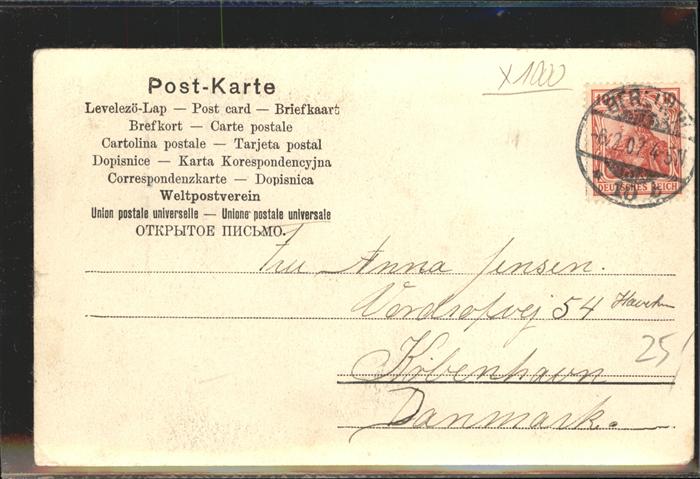 x1000
Post-Karte
Levelező-Lap — Post card — Briefkaart
Brefkort — Carte postale
Cartolina postale — Tarjeta postal
Dopisnice — Karta Korespondencyjna
Correspondenzkarte — Dopisnica
Weltpostverein
Union postale universelle — Unione postale universale
ОТКРЫТОЕ ПИСЬМО.
10 10
BERLIN W
-6.2.07.4-5N
* 10 b
DEUTSCHES REICH
Fru Anna Jensen.
54
25
Köbenhavn
Danmark.